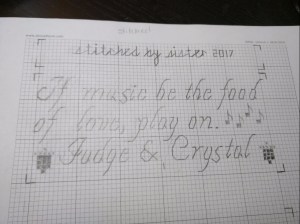 stitched by sister 2017
If music be the food
of love, play on.
Fudge & Crystal